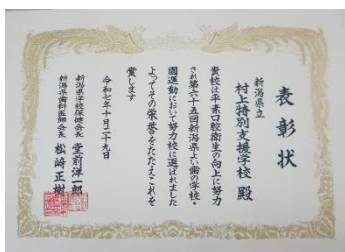 表彰状
新潟県立
村上特別支援学校 殿
貴校は平素口腔衛生の向上に努力
され第六十五回新潟県よい歯の学校・
園運動において努力校に選ばれました
よってその栄誉をたたえこれを
賞します
令和七年十月二十九日
新潟県学校保健会長 堂前洋一郎
新潟県歯科医師会長 松﨑正樹